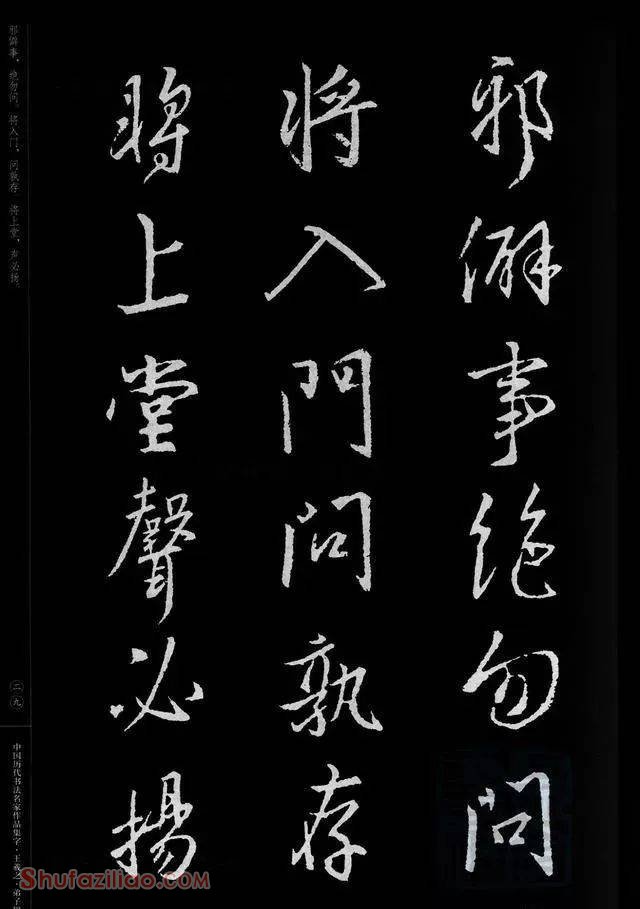 邪僻事絶勿問
將入門問孰存
將上堂聲必揚
邪僻事，绝勿问。将入门，问孰存 将上堂，声必扬。
二九
中国历代书法名家作品集字·王羲之·弟子规
Shufaziliao.com